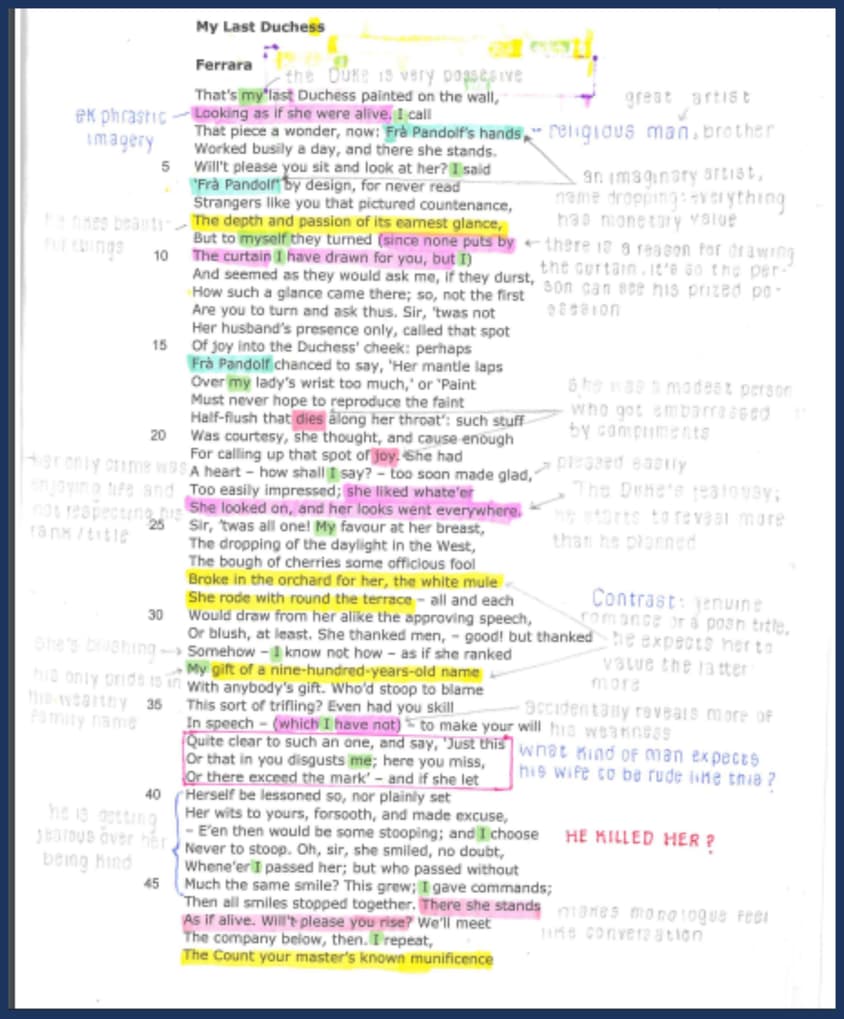 My Last Duchess
Ferrara
the Duke is very possesive
That's my last Duchess painted on the wall,
great artist
ekphrastic imagery
Looking as if she were alive. I call
That piece a wonder, now: Frà Pandolf's hands
religious man, brother
Worked busily a day, and there she stands.
5 Will't please you sit and look at her? I said
'Frà Pandolf' by design, for never read
an imaginary artist,
name dropping: everything
has monetary value
Strangers like you that pictured countenance,
he likes beauti-
ful things
The depth and passion of its earnest glance,
But to myself they turned (since none puts by
there is a reason for drawing
the curtain. it's so the per-
son can see his prized po-
10 The curtain I have drawn for you, but I)
And seemed as they would ask me, if they durst,
How such a glance came there; so, not the first
Are you to turn and ask thus. Sir, 'twas not
Her husband's presence only, called that spot
15 Of joy into the Duchess' cheek: perhaps
Frà Pandolf chanced to say, 'Her mantle laps
Over my lady's wrist too much,' or 'Paint
she was a modest person
who got embarrassed
by compliments
Must never hope to reproduce the faint
Half-flush that dies along her throat': such stuff
20 Was courtesy, she thought, and cause enough
For calling up that spot of joy. She had
her only crime was
enjoying life and
not respecting his
rank/title
A heart – how shall I say? – too soon made glad,
pleased easily
Too easily impressed; she liked whate'er
The Duke's jealousy;
he starts to reveal more
than he planned
She looked on, and her looks went everywhere.
25 Sir, 'twas all one! My favour at her breast,
The dropping of the daylight in the West,
The bough of cherries some officious fool
Broke in the orchard for her, the white mule
She rode with round the terrace – all and each
Contrast: jenuine
romance or a posh title,
he expects her to
value the latter
more
30 Would draw from her alike the approving speech,
Or blush, at least. She thanked men, – good! but thanked
she's blushing
Somehow – I know not how – as if she ranked
his only pride is in
his wealthy
family name
My gift of a nine-hundred-years-old name
With anybody's gift. Who'd stoop to blame
35 This sort of trifling? Even had you skill
accidentally reveals more of
his weakness
In speech – (which I have not) – to make your will
Quite clear to such an one, and say, 'Just this
Or that in you disgusts me; here you miss,
Or there exceed the mark' – and if she let
what kind of man expects
his wife to be rude like this?
40 Herself be lessoned so, nor plainly set
he is getting
jealous over her
being kind
Her wits to yours, forsooth, and made excuse,
– E'en then would be some stooping; and I choose
HE KILLED HER?
Never to stoop. Oh, sir, she smiled, no doubt,
Whene'er I passed her; but who passed without
45 Much the same smile? This grew; I gave commands;
Then all smiles stopped together. There she stands
As if alive. Will't please you rise? We'll meet
makes monologue feel
like conversation
The company below, then. I repeat,
The Count your master's known munificence